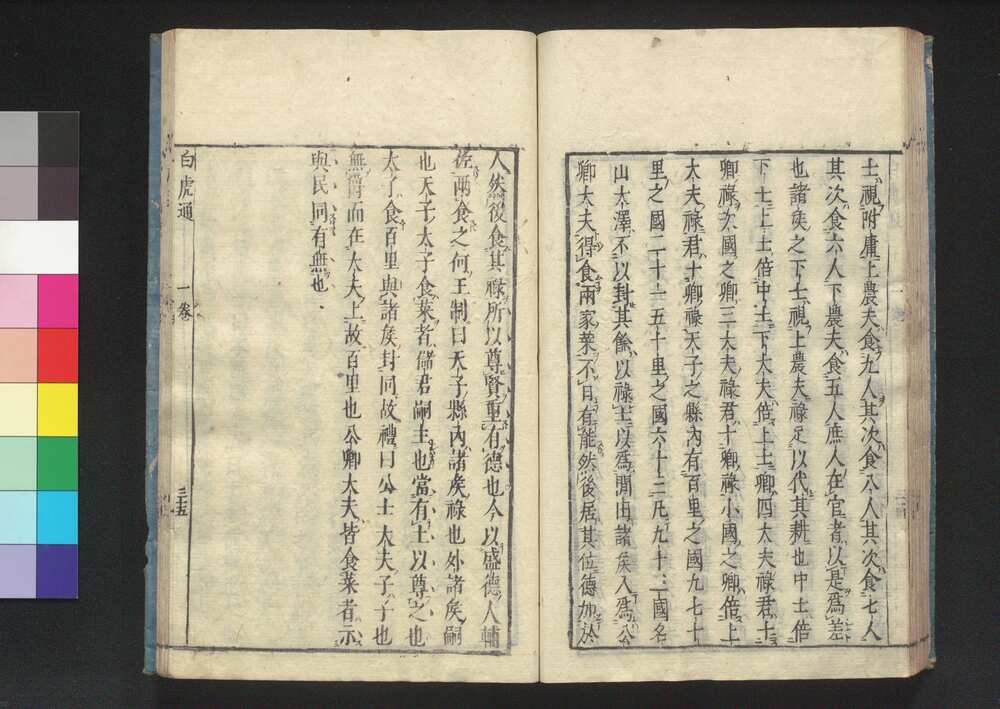 士視附庸上農夫食九人其次食八人其次食七人
其次食六人下農夫食五人庶人在官者以是爲差
也諸矦之下士視上農夫祿足以代其耕也中士倍
下士上士倍中士下大夫倍上士卿四大夫祿君十
卿祿次國之卿三大夫祿君十卿祿小國之卿倍上
大夫祿君十卿祿天子之縣内有百里之國九七十
里之國二十一五十里之國六十三凡九十三國名
山大澤不以封其餘以祿士以爲閒田諸矦入爲公
卿大夫得食兩家菜不曰有能然後居其位德加於
人然後食其祿所以尊賢重有德也今以盛德人輔
佐兩食之何王制曰天子縣内諸矦祿也外諸矦嗣
也天子太子食菜者儲君嗣主也當有土以尊之也
太子食百里與諸矦封同故禮曰公士大夫子子也
無爵而在大夫上故百里也公卿大夫皆食菜者示
與民同有無也
白虎通 一卷 三十五